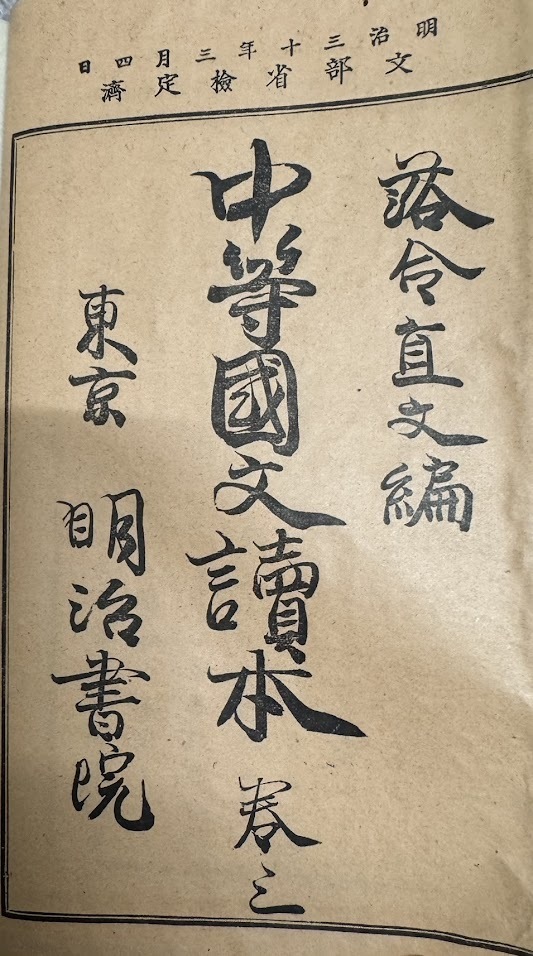 明治三十年三月四日
文部省檢定濟
落合直文編
中等國文讀本 卷三
東京 明治書院